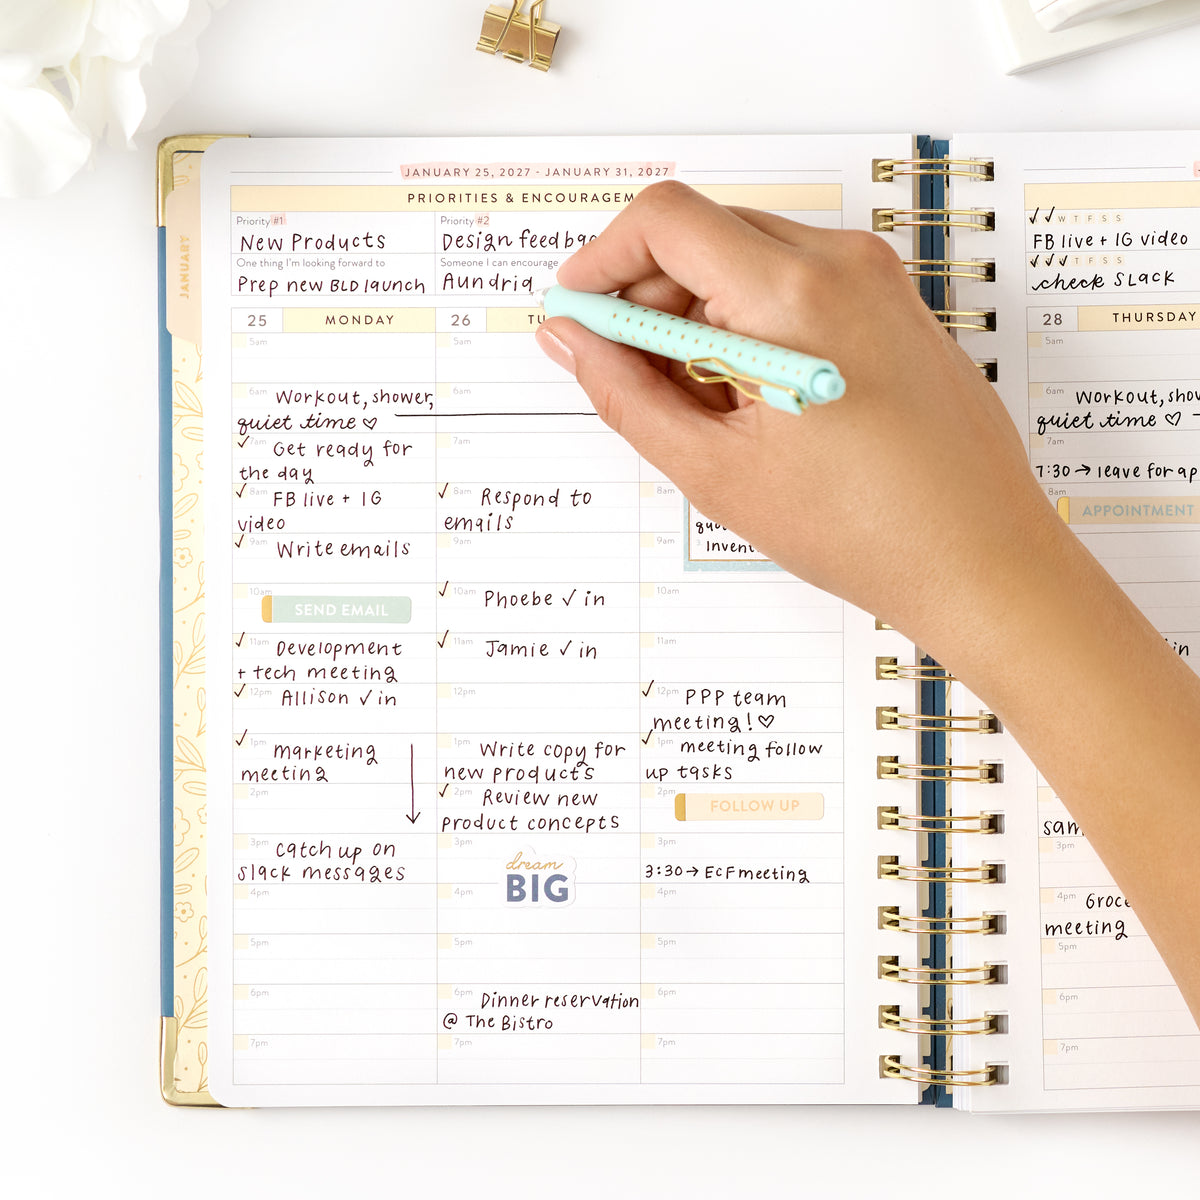 JANUARY 25, 2027 - JANUARY 31, 2027
PRIORITIES &
Priority #1
New Products
One thing I'm looking forward to
Prep new BLD launch
Priority #2
Design
Someone I can encourage
Aundria
JANUARY
25 MONDAY
5am
6am Workout, shower,
quiet time ♡
✓ 7am Get ready for
the day
✓ 8am FB live + IG
video
✓ 9am Write emails
10am
SEND EMAIL
✓ 11am Development
+ tech meeting
✓ 12pm Allison ✓ in
✓ 1pm marketing
meeting
2pm
3pm catch up on
slack messages
4pm
5pm
6pm
7pm
26
5am
6am
7am
✓ 8am Respond to
emails
9am
✓ 10am Phoebe ✓ in
✓ 11am Jamie ✓ in
12pm
1pm Write copy for
new products
✓ 2pm Review new
product concepts
3pm
dream
BIG
4pm
5pm
6pm Dinner reservation
@ The Bistro
7pm
8am
9am
10am
11am
✓ 12pm PPP team
meeting! ♡
✓ 1pm meeting follow
up tasks
2pm
FOLLOW UP
3pm
3:30 → ECF meeting
4pm
5pm
6pm
7pm
✓ ✓ W T F S S
FB live + IG video
✓ ✓ ✓ T F S S
check Slack
28 THURSDAY
5am
6am Workout,
quiet time ♡
7am
7:30 → leave for
8am
APPOINTMENT
in
3pm
4pm
meeting
5pm
6pm
7pm